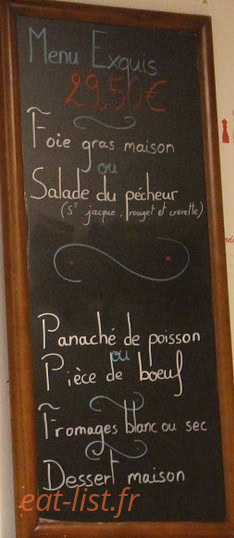 Menu Exquis
29,50€
Foie gras maison
ou
Salade du pécheur
(St jacque, rouget et crevette)
Panaché de poisson
ou
Pièce de boeuf
Fromages blanc ou sec
Dessert maison
eat-list.fr